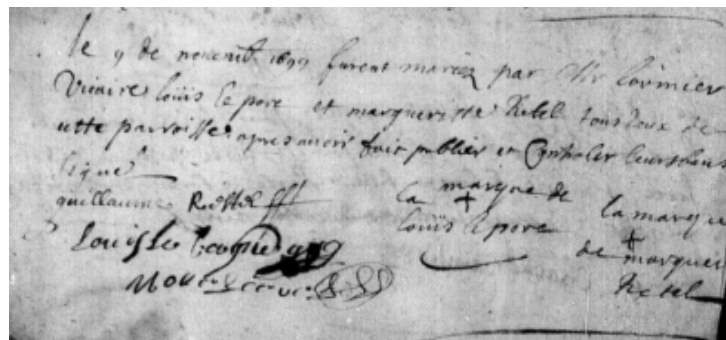 le 9 de novemb 1699 furent mariez par Mr Cormier
Vicaire loüis le pore et margueritte Retel tous deux de
cette parroisse apres avoir fait publier et Controler leurs bans
signé
guillaume Restel la marque de la marque
louis le pore de marguer
Louis le Retel